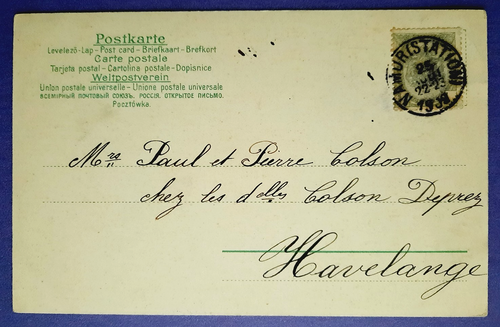 Postkarte
Levelező-Lap - Post card - Briefkaart - Brefkort
Carte postale
Tarjeta postal - Cartolina postale - Dopisnice
Weltpostverein
Union postale universelle - Unione postale universale
ВСЕМІРНЫЙ ПОЧТОВЫЙ СОЮЗЪ. РОССІЯ. ОТКРЫТОЕ ПИСЬМО.
Pocztówka.
NAMUR (STATION)
Mrs Paul et Pierre Colson
chez les delles Colson Deprez
Havelange